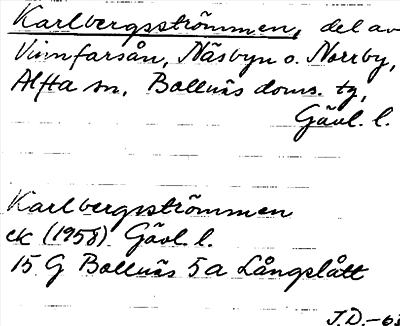 Karlbergsströmmen, del av
Viinfarsån, Näsbyn o. Norrby,
Alfta sn, Bollnäs doms. tg,
Gävl. l.
Karlbergsströmmen
ek (1958) Gävl. l.
15 G Bollnäs 5a Långslått
J.D.-63